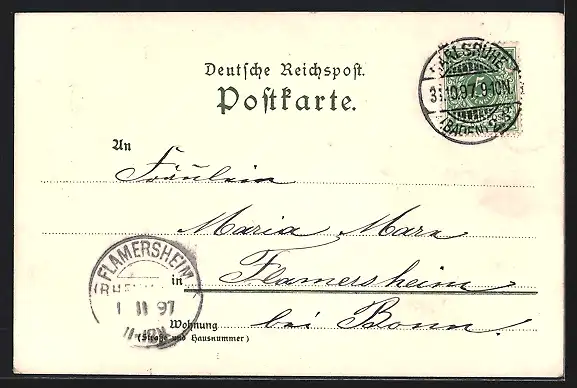 Deutsche Reichspost.
Postkarte.
KARLSRUHE
31.10.97. 9-10N.
(BADEN)
5
An
Fräulein
Maria Marx
in Flamersheim
FLAMERSHEIM
1 11 97
Wohnung
(Straße und Hausnummer)
bei Bonn.